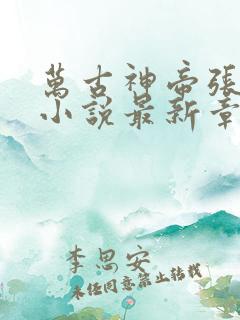 萬古神帝張
小說最新章
李思安
未經同意禁止轉載